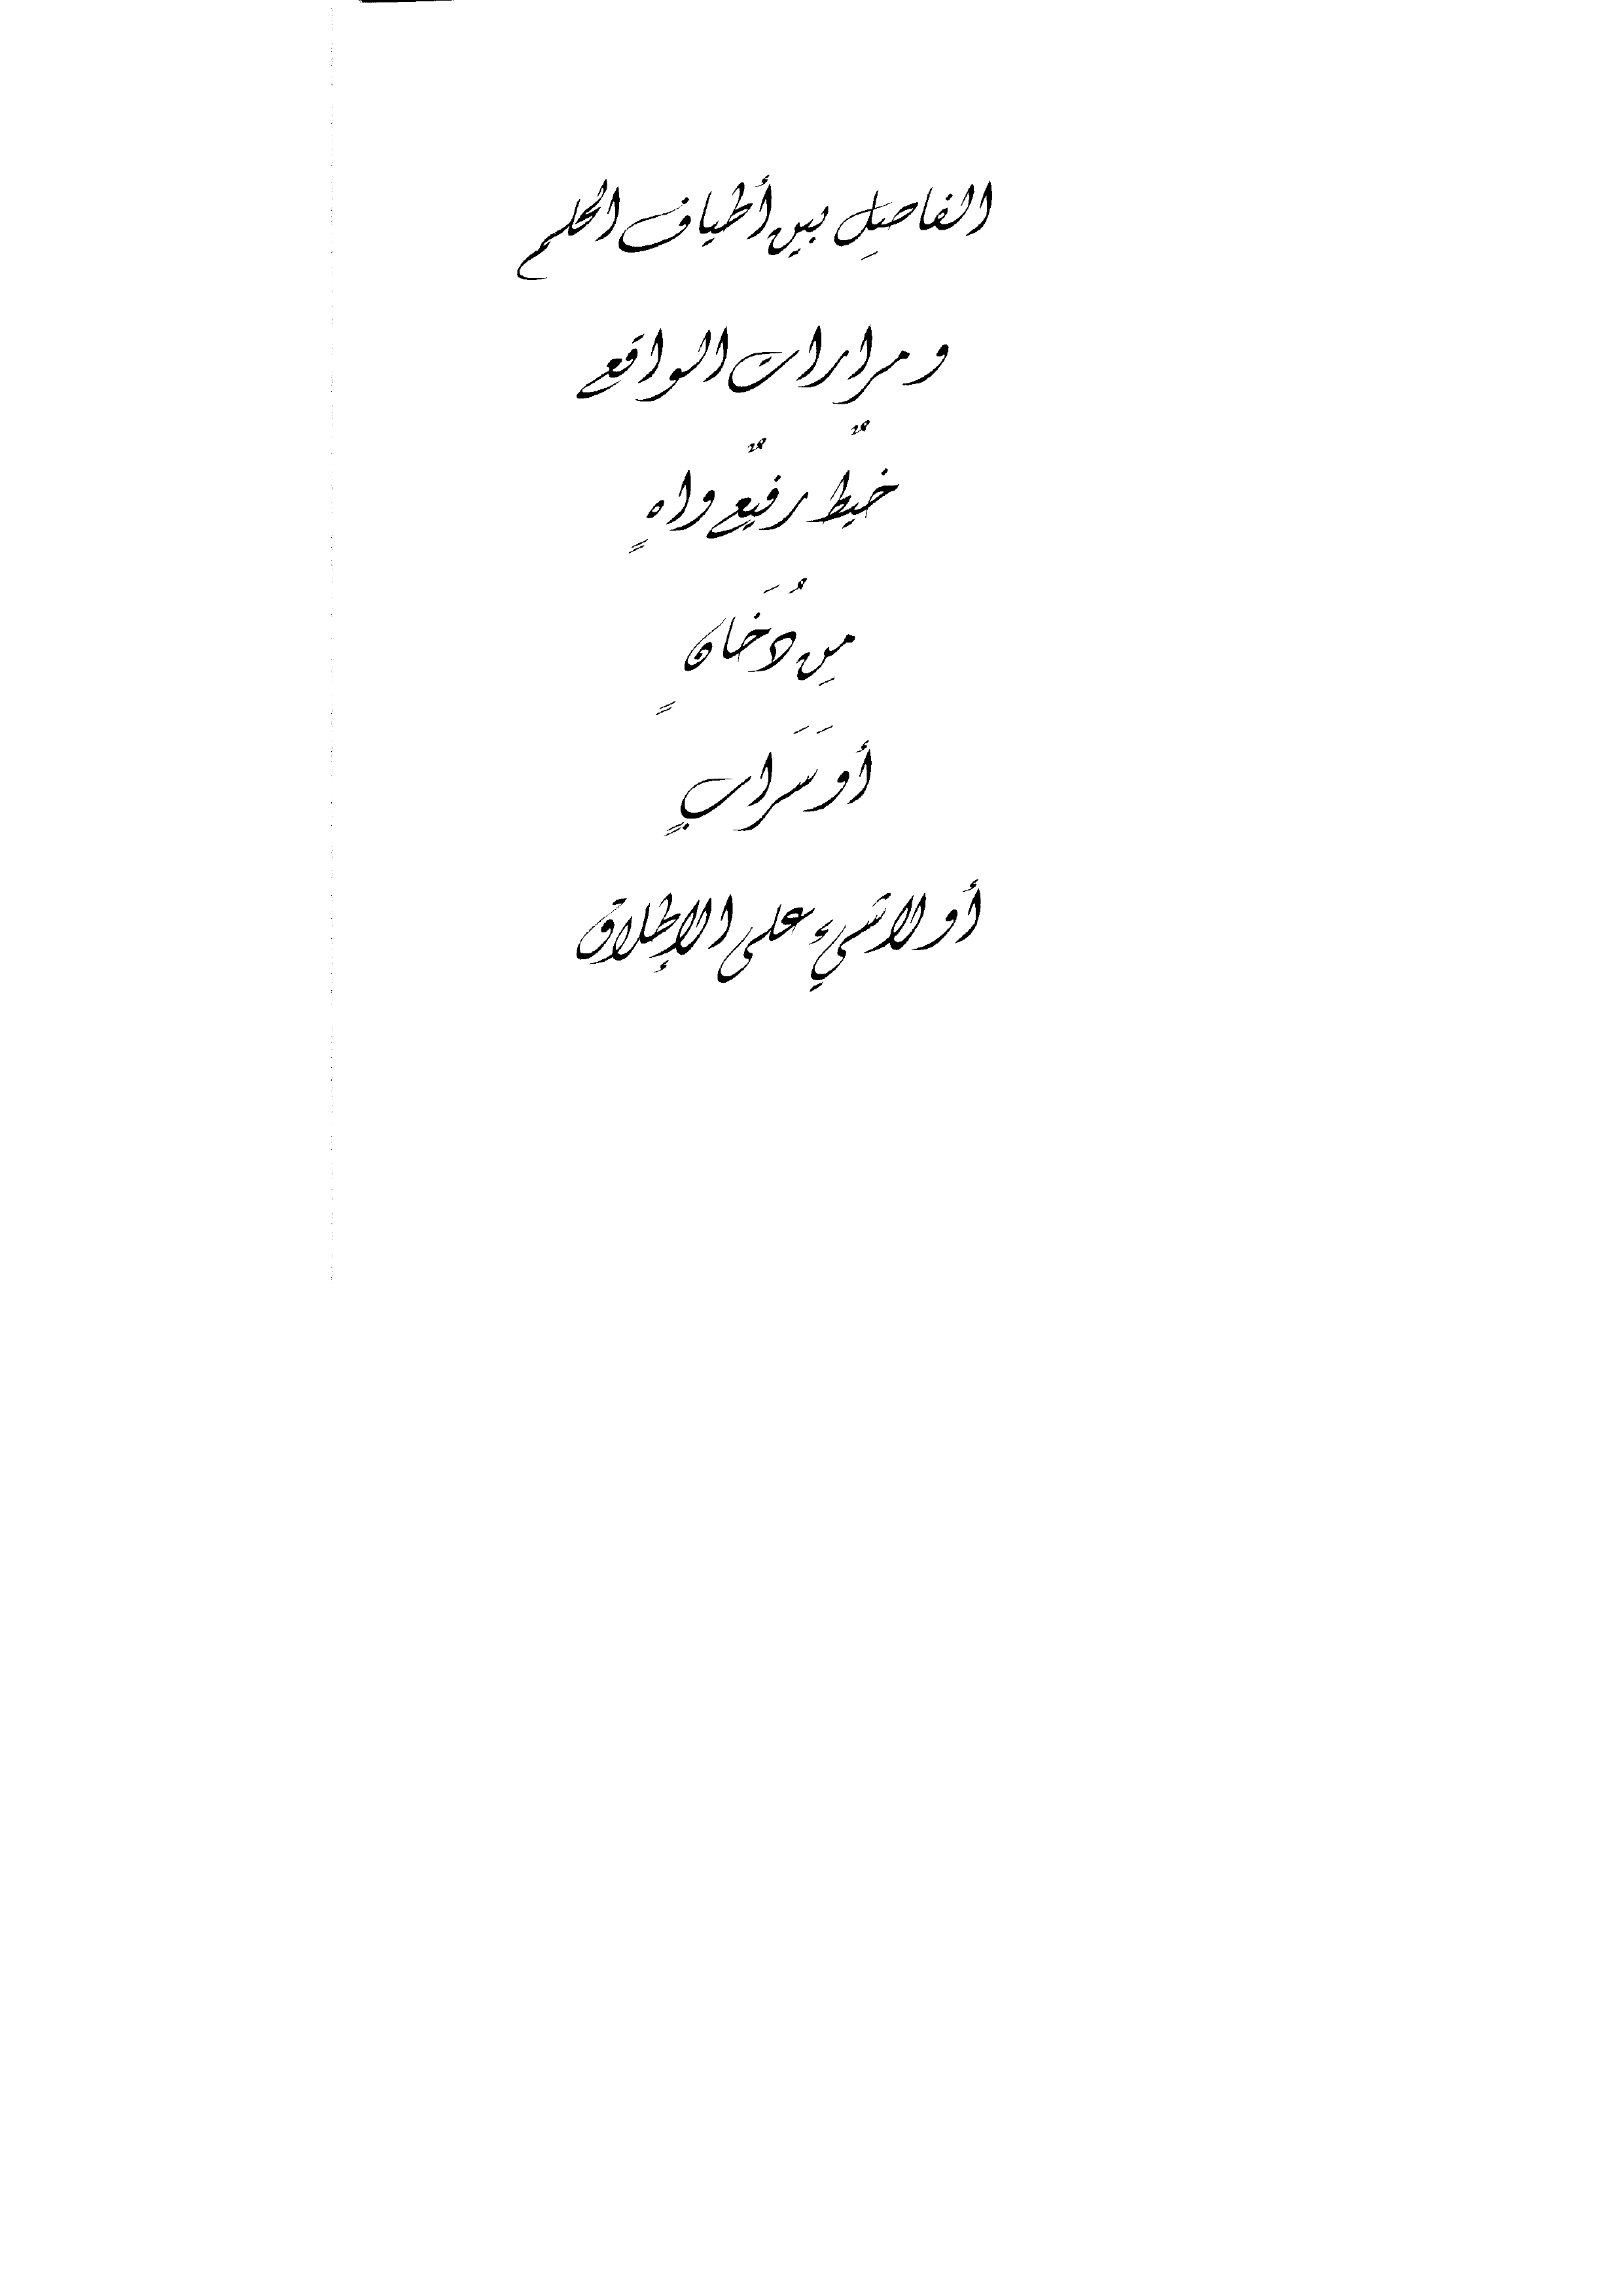 الفاصِل بين أطياف الحلم
و مرارات الواقع
خيطٌ رفيعٌ واهٍ
مِن دُخَانٍ
أو سَرَابٍ
أو لا شيء على الإطلاق